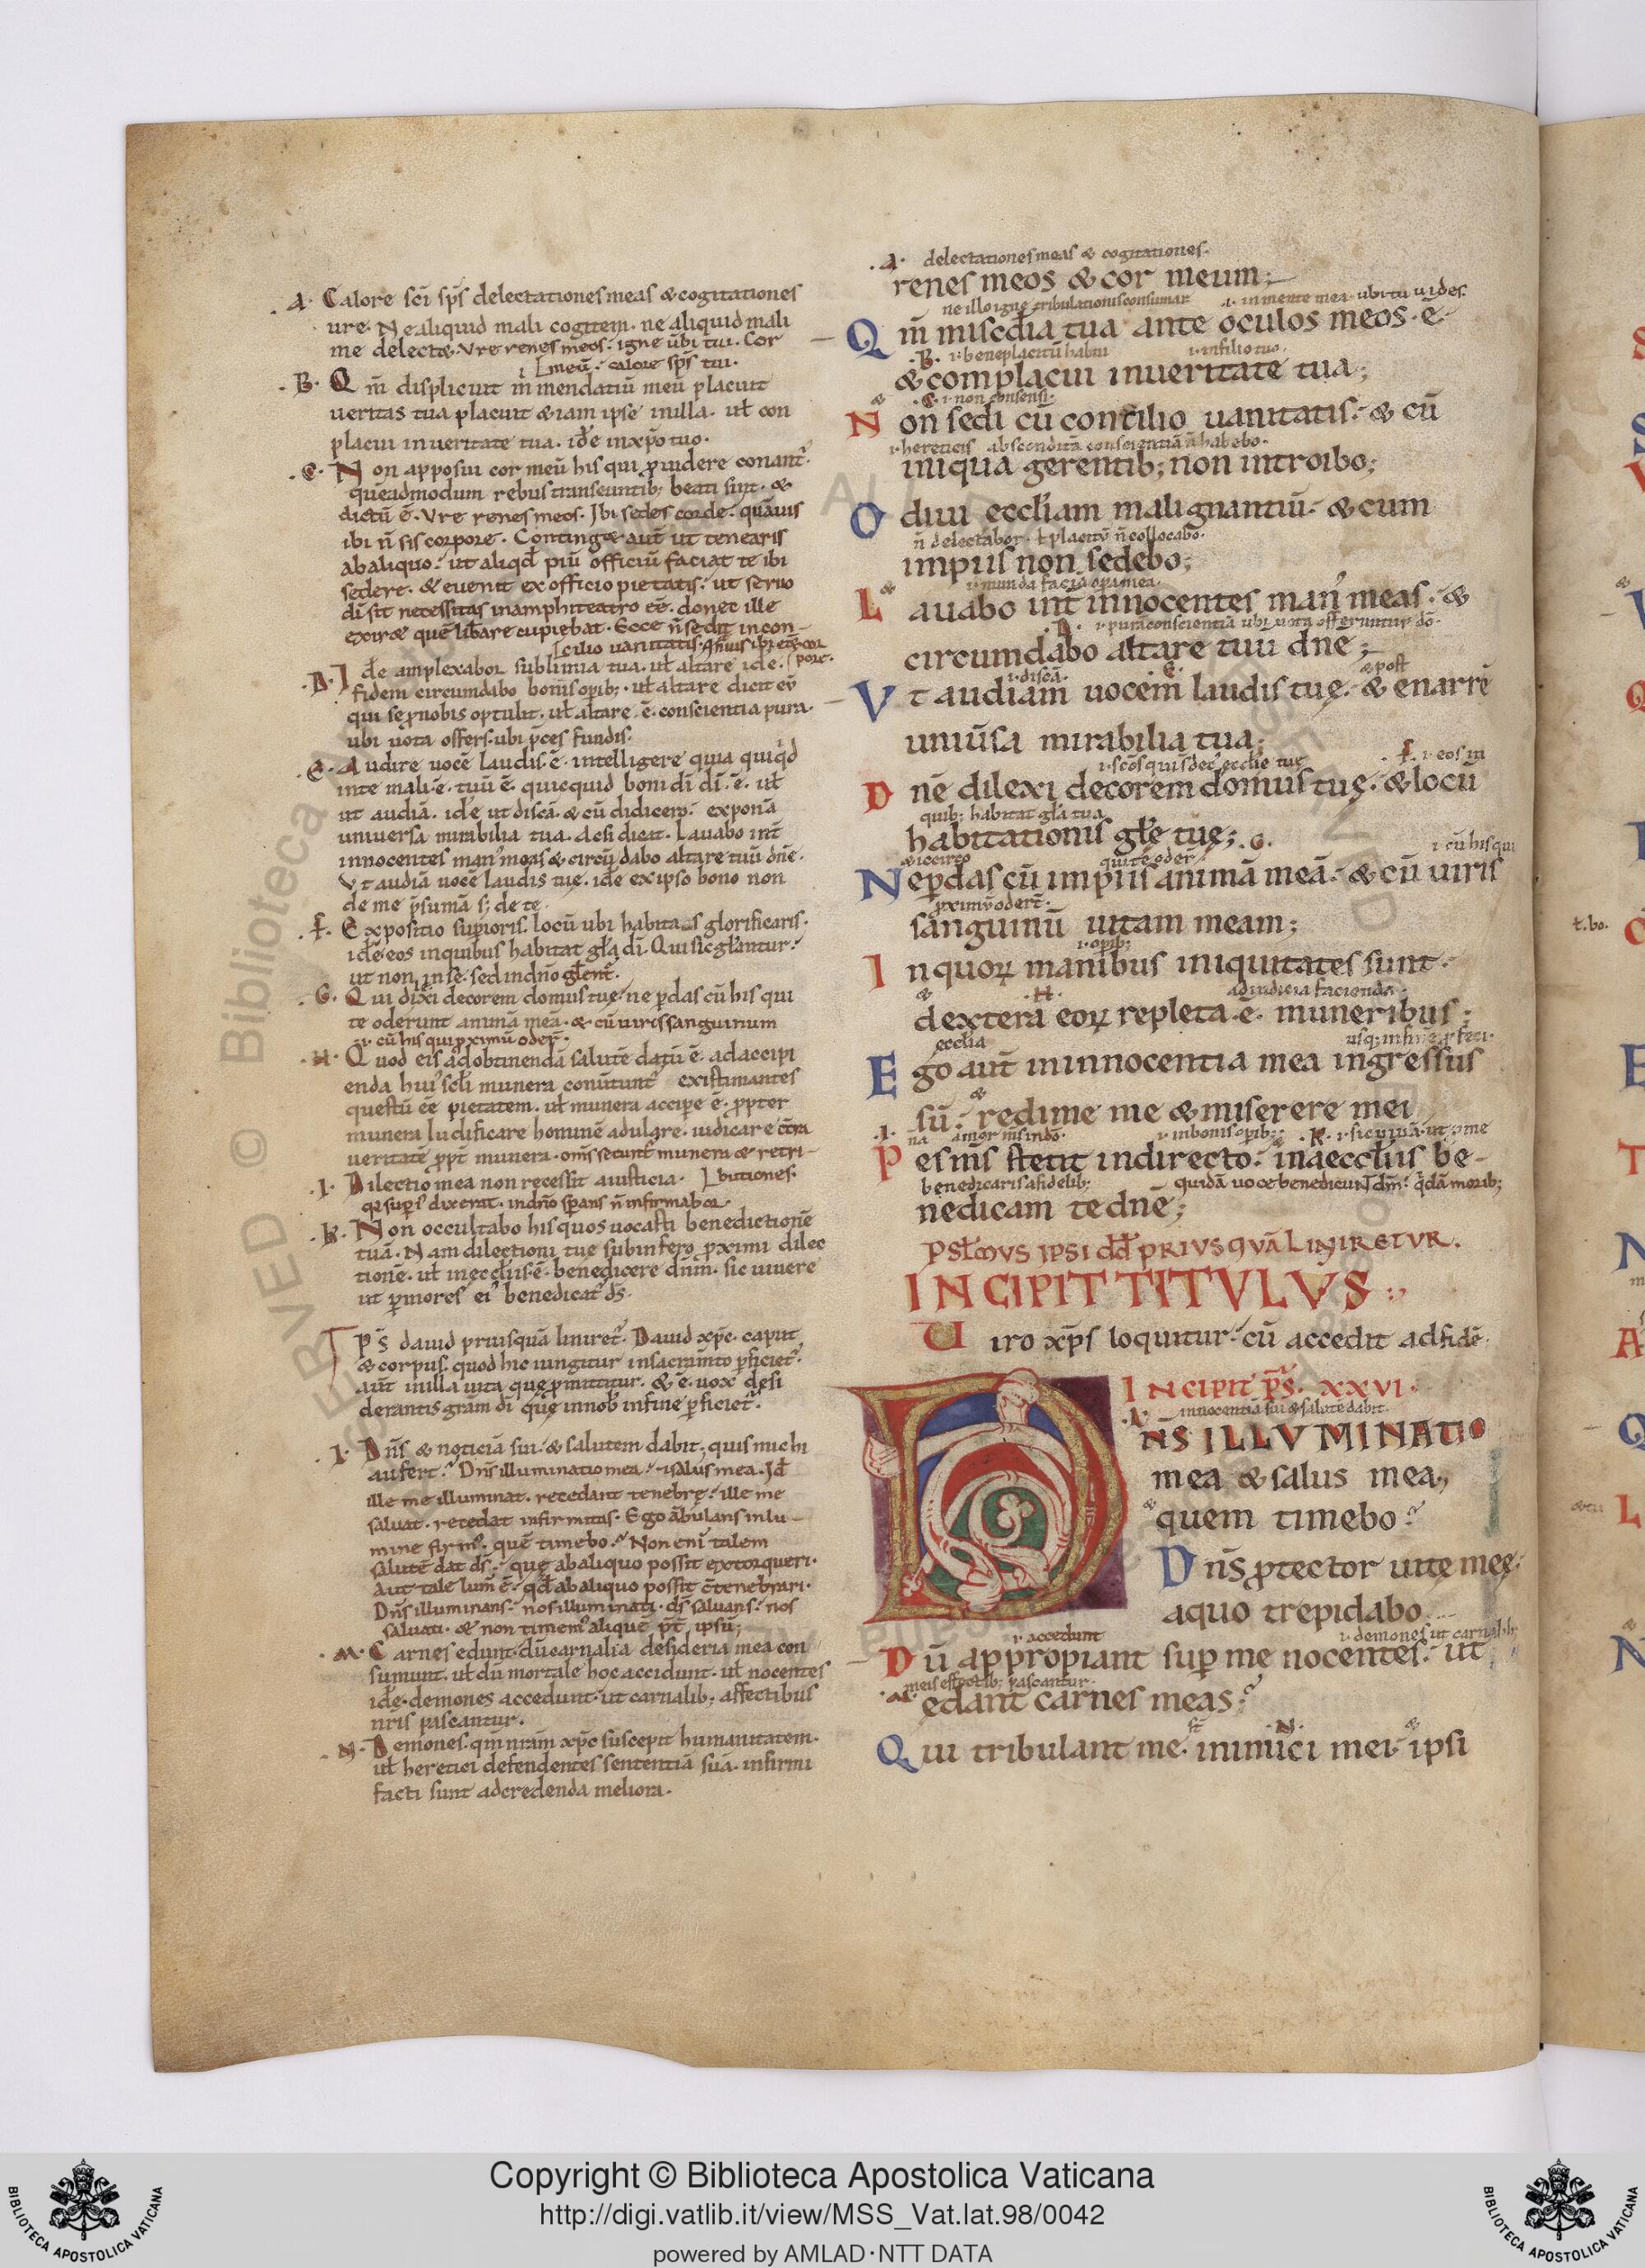 .A. Calore sc̄i sp̄s delectationes meas & cogitationes
ure. Ne aliquid mali cogitem. ne aliquid mali
me delecte. Vre renes meos. igne ūbi tui. Cor
meū. calore sp̄s tui.
.B. Qm̄ displicuit m̄ mendatiū meū placuit
ueritas tua placuit & iam ipse in illa. uł con
placui in ueritate tua. idē in xp̄o tuo.
.C. Non apposui cor meū his qui p̄uidere conant᷑
quēadmodum rebus transeuntib; beati sint. &
dictū ē. Vre renes meos. Ibi sedes corde. quāuis
ibi n̄ sis corpore. Conting& aut̄ ut tenearis
ab aliquo. ut aliqd̄ piū officiū faciat te ibi
sedere. & euenit ex officio pietatis. ut seruo
dī sit necessitas in amphiteatro eē. donec ille
exir& quē lib̄are cupiebat. Ecce n̄ sedit in con-
cilio uanitatis. qm̄uis ibi eēt cor
pore.
.D. Idē amplexabor sublimia tua. uł altare idē.
fidem circumdabo bonis opib;. uł altare dicit eū
qui se p̄ nobis optulit. uł altare ē. conscientia pura.
ubi uota offers. ubi p̄ces fundis.
.E. Audire uocē laudis. ē. intelligere quia quiq'd
in te mali. ē. tuū ē. quicquid boni dī. dī. ē. uł
ut audiā. idē ut discā. & cū didicero. exponā
uniuersa mirabilia tua. ac si dicat. Lauabo int̄
innocentes man' meas & circūdabo altare tuū dn̄e.
Vt audiā uocē laudis tuę. idē ex ipso bono non
de me p̄sumā s; de te.
.F. Expositio supioris. locū ubi habitas glorificaris.
idē eos in quibus habitat gła dī. Qui sic głantur.
ut non in se. sed in dn̄o głent᷑.
.G. Qui dilexi decorem domus tuę. ne p̄das cū his qui
te oderunt animā meā. & cū uiris sanguinum
i. cū his qui pximū oder̄.
.H. Quod eis ad obtinendā salutē datū ē. ad accipi
enda hui' scłi munera conūtunt᷑ existimantes
questū eē pietatem. uł munera accipe ē. p̄pter
munera ludificare hominē adulare. iudicare c̄tra
ueritatē p̄pt̄ munera. om̄s secunt᷑ munera & retri-
butiones.
.I. Dilectio mea non recessit a iusticia.
q' supi' dixerat. in dn̄o sp̄ans n̄ infirmabor.
.K. Non occultabo his quos uocasti benedictionē
tuā. Nam dilectioni tuę subinfero p̄ximi dilec
tionē. uł in ecclīis. ē. benedicere dn̄m. sic uiuere
ut p̄ mores ei' benedicat᷑ ds̄.
Ps̄ dauid priusquā liniret᷑. Dauid xp̄c. caput
& corpus. quod hic iungitur in sacram̄to p̄ficiet᷑
aut̄ in illa uita quę p̄mittitur. & ē. uox desi
derantis gram̄ dī quę in nob̄ in fine p̄ficiet᷑.
.L. Dn̄s & noticiā sui. & salutem dabit. quis michi
aufert. Dn̄s illuminatio mea. & salus mea. Id̄
ille me illuminat. recedant tenebrę. ille me
saluat. recedat infirmitas. Ego ābulans in lu-
mine firm'. quē timebo. Non enī talem
salutē dat ds̄. quę ab aliquo possit extorqueri.
Aut tale lum̄ ē. qd̄ ab aliquo possit c̄tenebrari.
Dn̄s illuminans. nos illuminati. ds̄ saluans. nos
saluati. & non timem' aliquē p̄t̄ ipsū;
.M. Carnes edunt. dū carnalia desideria mea con
sumunt. uł dū mortale hoc accidunt. uł nocentes
idē. demones accedunt. ut carnalib; affectibus
nr̄is pascantur.
.N. Demones. qm̄ nr̄am xp̄c suscepit humanitatem.
uł heretici defendentes sententiā suā. infirmi
facti sunt ad credenda meliora.
.A. delectationes meas & cogitationes.
renes meos & cor meum;
ne illo igne tribulationis consumar .i. in mente mea. ubi tu uides.
Qm̄ misc̄dia tua ante oculos meos. ē.
.B. i. beneplacitū habui i. in filio tuo.
& complacui in ueritate tua;
& .C. i. non consensi.
Non sedi cū concilio uanitatis. & cū
i. hereticis absconditā conscientiā n̄ habebo.
iniqua gerentib; non introibo;
Odiui eccłiam malignantiū. & cum
n̄ delectabor. ł placitū n̄ collocabo.
impiis non sedebo;
& i. munda faciā opa mea.
Lauabo int̄ innocentes man' meas. &
.D. i. purā conscientiā ubi uota offeruntur dō.
circumdabo altare tuū dn̄e;
i. discā. .E. & post
Vt audiam uocem laudis tuę. & enarrē
uniūsa mirabilia tua;
i. scōs qui s̄ dec' eccłie tuę .F. i. eos in
Dn̄e dilexi decorem domus tuę. & locū
quib; habitat gła tua
habitationis głe tuę; .G.
& iccirco qui te oder̄ i. cū his qui
Ne p̄das cū impiis animā meā. & cū uiris
p̄ximū oder̄t.
sanguinū uitam meam;
i. opib;
In quoꝝ manibus iniquitates sunt.
& .H. ad iudicia facienda.
dextera eoꝝ repleta. ē. muneribus;
ecclīa usq; in finē p̄feci.
Ego aut̄ in innocentia mea ingressus
&
sū. redime me & miserere mei
.I. na amor m̄s in dō. i. in bonis opib; .K. i. sic uiuā. ut p̄ me
Pes m̄s stetit in directo. in aeccłiis be-
benedicaris a fidelib; quidā uoce benedicunt dn̄m. q'dā morib;
nedicam te dn̄e;
PSŁMVS IPSI DD̄ PRIVSQVĀ LINIRETVR.
INCIPIT TITVLVS
Uiro xp̄s loquitur. cū accedit ad fidē.
INCIPIT PS̄. XXVI.
.L. innocentiā sui & salutē dabit.
DN̄S ILLVMINATIO
mea & salus mea,
& quem timebo?
Dn̄s p̄tector uitę meę.
a quo trepidabo
i. accedunt i. demones ut carnalib;
Dū appropiant sup̄ me nocentes. ut
.M. meis effectib; pascantur.
edant carnes meas;
st̄ .N. &
Qui tribulant me. inimici mei. ipsi
ł. bo.
Copyright © Biblioteca Apostolica Vaticana
http://digi.vatlib.it/view/MSS_Vat.lat.98/0042
powered by AMLAD·NTT DATA
BIBLIOTECA APOSTOLICA VATICANA
BIBLIOTECA APOSTOLICA VATICANA